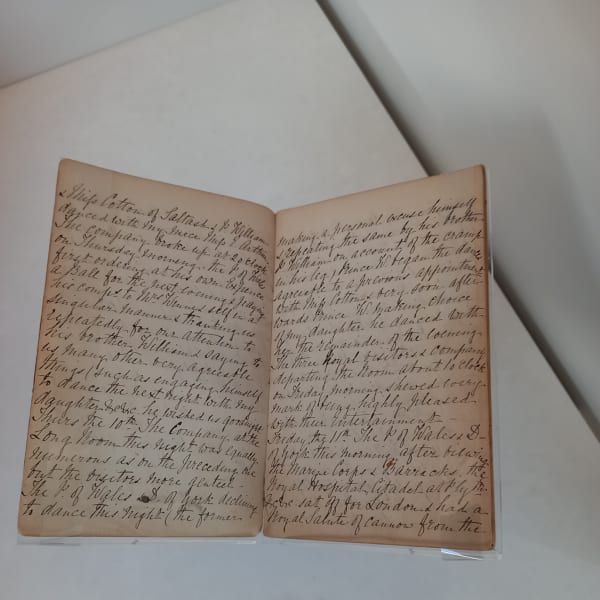 & Miss Cotton of Saltash & Pr. William
danced with my niece Miss E. Arthur
The company broke up at 2 o'clock
on Thursday morning. the P. of Wales
first ordering at his own expence
a Ball for the next evening & paying
his comps to Mrs Winne & self in a
singular manner & thanking us
repeatedly for our attention to
his brother William & saying to
us many other very agreeable
things, such as engaging himself
to dance the next night with my
daughter &c &c he wished us goodnight
Thurs the 10th. The Company at the
Long Room this night was equally
numerous as on the preceding one
but the visitors more genteel.
The P. of Wales & D. of York declining
to dance this night (the former
making a personal excuse himself
& repeating the same by his brother
Pr William on account of the cramp
in his leg) Prince W. began the dance
agreeable to a previous appointment
with Miss Cotton & very soon after-
wards Prince W. making choice
of my daughter he danced with
her the remainder of the evening.
The three Royal visitors & company
departing the Room about 1 o'clock
on Friday morning shewed every
mark of being highly pleased
with their Entertainment.
Friday the 11th. The P. of Wales & D-
of York this morning after
the Marine Corps & Barracks, the
Royal Hospital, Citadel at Ply
&c &c sat off for London & had a
Royal Salute of cannon from the